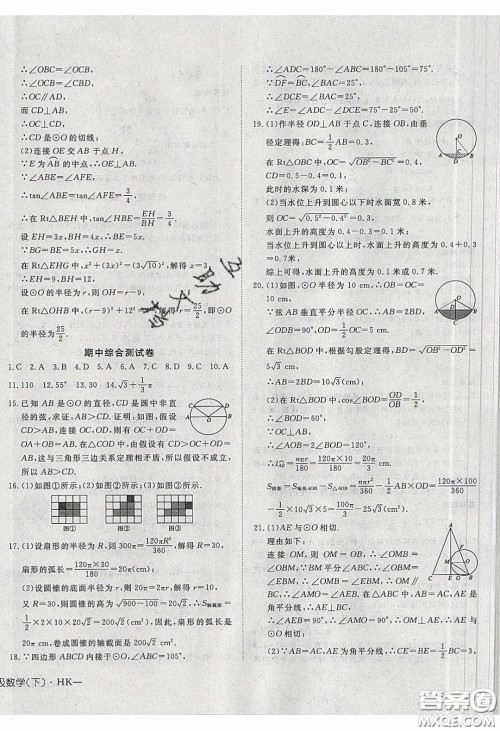 ∴∠OBC=∠OCB,
∴∠OCB=∠CBD,
∴OC∥AD,
而 CD⊥AB,
∴OC⊥CD,
∴CD 是⊙O 的切线;
(2)连接 OE 交 AB 于点 H,
∵E 为AB的中点,∴OE⊥AB,
∵∠ABE=∠AFE,
∴tan∠ABE=tan∠AFE=3/4.
∴在 Rt△BEH 中,tan∠HBE=EH/BH=3/4.
设 EH=3x,BH=4x,∴BE=5x.
∵BG=BE=5x,∴GH=x.
在 Rt△EHG 中,x²+(3x)²=(3√10)²,解得 x=3,
∴EH=9,BH=12.
设⊙O 的半径为 r,则 OH=r−9,
在 Rt△OHB 中,(r−9)²+12²=r²,解得 r=25/2,即⊙O
的半径为25/2.
期中综合测试卷
1.C 2.A 3.B 4.D 5.A 6.C 7.B 8.C 9.D 10.A
11.110 12.55° 13.30 14.√3+1/3π
15.已知 AB 是⊙O 的直径,CD 是圆中非直
径的弦,求证:AB>CD.证明:假设 AB≤
CD.连接 OC,OD,则有 OC+OD=
OA+OB=AB.在△OCD中,OC+OD≤
CD,这与三角形三边关系定理相矛盾,所以假设不成立,
所以 AB>CD.
16.(1)如图①所示.(2)如图②③所示.
图① 图② 图③
17.(1)设扇形的半径为 R,则 300π=120πR²/360,解得 R=30,
扇形的弧长=120π×30/180=20π(cm);
(2)设圆锥的底面半径为 r,则 20π=2πr,解得 r=10.
又 R=30,所以圆锥的高为√900−100=20√2.∴S轴截面=
1/2×20×20√2=200√2(cm²).因此,扇形的弧长是
20π cm,卷成圆锥的轴截面是 200√2 cm².
18.∵四边形 ABCD 内接于⊙O,∠ABC=105°,
级数学(下)·HK—
∴∠ADC=180°−∠ABC=180°−105°=75°.
∵DF=BC,∴∠DCE=∠BAC=25°,
∴∠E=∠ADC−∠DCE=75°−25°=50°.
19.(1)作半径 OD⊥AB 于点 C,连接 OB,由垂
径定理得:BC=1/2AB=0.3,
在 Rt△OBC 中,OC=√OB²−BC²=0.4,
CD=0.5−0.4=0.1,
此时的水深为 0.1 米;
(2)当水位上升到圆心以下时水面宽 0.8 米,
则 OC=√0.5²−0.4²=0.3,
水面上升的高度为:0.4−0.3=0.1 米;
当水位上升到圆心以上时,水面上升的高度为:0.4+0.3
=0.7 米,
综上可得,水面上升的高度为 0.1 米或 0.7 米.
20.(1)如图,∵圆的半径等于 10 cm,
∴OB=OC=10 cm,
∵弦 AB垂直平分半径 OC,
∴OD=1/2OC=1/2×10=5(cm).
∴在 Rt△OBD 中,根据勾股定理可得:BD=√OB²−OD²=
5√3(cm),
(2)∵在 Rt△OBD 中,cos∠BOD=OD/OB=1/2,
∴∠BOD=60°,
∵OC⊥AB,
∴∠AOB=2∠BOD=120°,
∴l=nπr/180=120π×10/180=20π/3(cm).
S阴影=S扇形AOB−S△AOB=nπr²/360−1/2AB×OD=120π×10²/360
−1/2×10√3×5=100π/3−25√3(cm²).
21.(1)AE 与⊙O 相切.
理由如下:
连接 OM,则 OM=OB,∴∠OMB=
∠OBM,∵BM平分∠ABC,∴∠OBM=
∠EBM,∴∠OMB=∠EBM,∴OM∥
BE,∴∠AMO=∠AEB,
∵在△ABC 中,AB=AC,AE 是角平
分线,∴AE⊥BC,∴∠AEB=90°,
∴∠AMO=90°,∴OM⊥AE,
∴AE 与⊙O 相切;
(2)∵在△ABC 中,AB=AC,AE 是角平分线,∴BE=